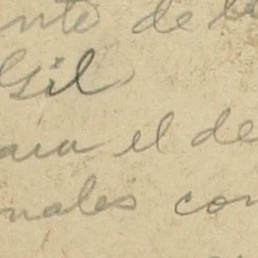 nte de
Gil
para el de
onales con